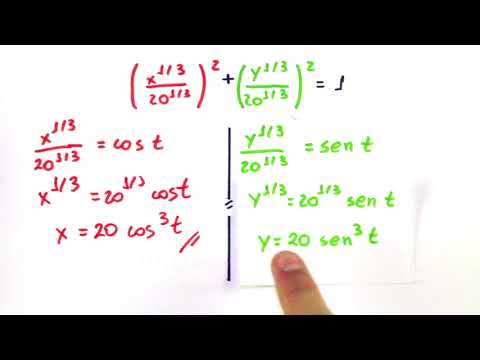 (x^{1/3}/20^{1/3})^2 + (y^{1/3}/20^{1/3})^2 = 1
x^{1/3}/20^{1/3} = cos t
x^{1/3} = 20^{1/3} cos t
x = 20 cos^3 t //
y^{1/3}/20^{1/3} = sen t
y^{1/3} = 20^{1/3} sen t
y = 20 sen^3 t